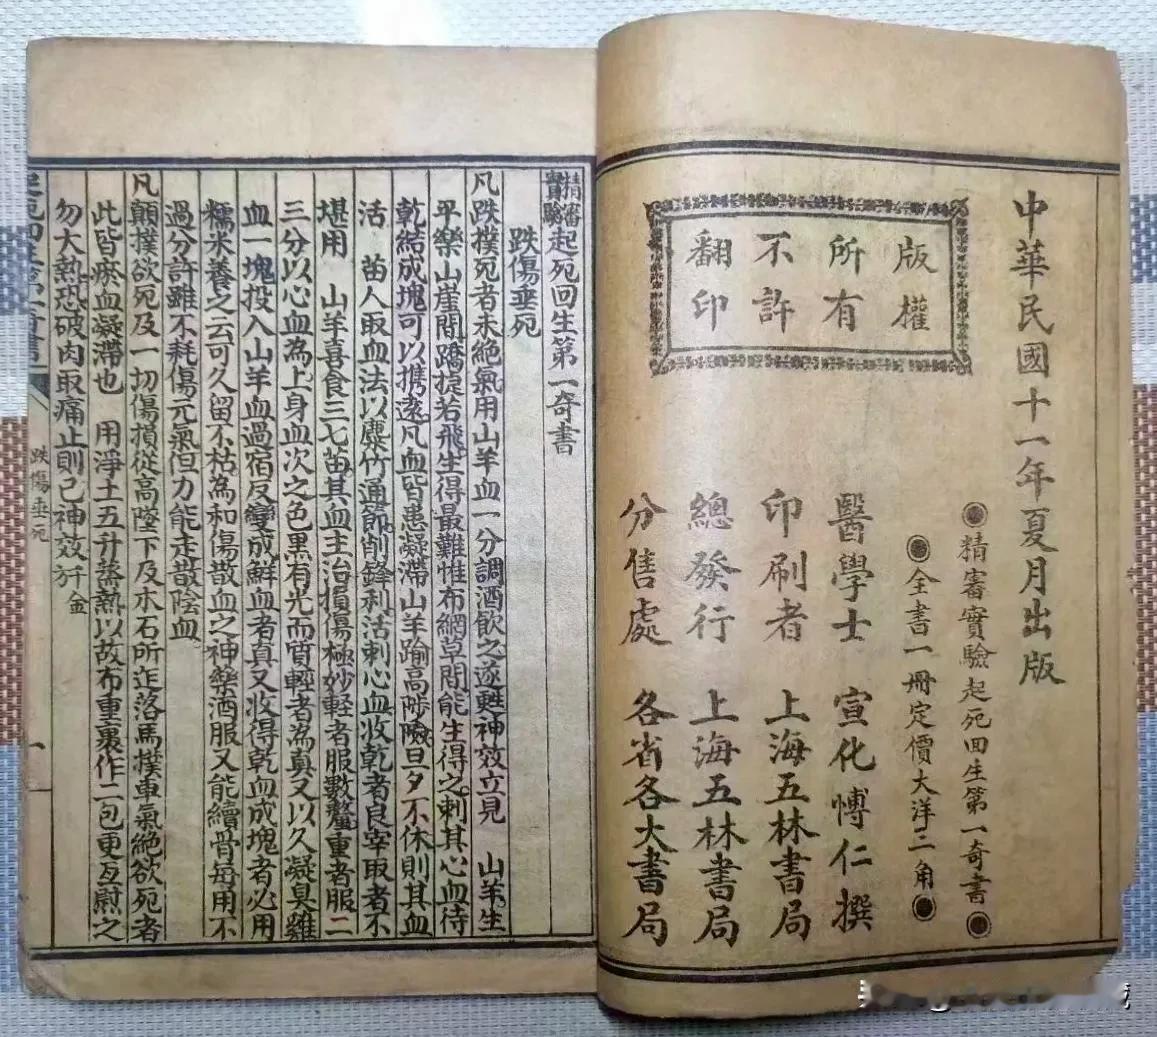 中華民國十一年夏月出版
精審實驗起死回生第一奇書
全書一冊定價大洋二角
版權
所有
不許
翻印
醫學士 宣化愽仁撰
印刷者 上海五林書局
總發行 上海五林書局
分售處 各省各大書局
精審實驗起死回生第一奇書
跌傷垂死
凡跌撲死者未絶氣用山羊血一分調酒飲之遂甦神效立見 山羊生
平樂山崖間蹻捷若飛生得最難惟布網草間能生得之刺其心血待
乾結成塊可以携遠凡血皆患凝滯山羊踰高陟險旦夕不休則其血
活 苗人取血法以麋竹通節削鋒利活刺心血收乾者良宰取者不
堪用 山羊喜食三七苗其血主治損傷極妙輕者服數釐重者服二
三分以心血為上身血次之色黑有光而質輕者為真又以久凝臭雞
血一塊投入山羊血過宿反變成鮮血者真又收得乾血成塊者必用
糯米養之云可久留不枯為和傷散血之神藥酒服又能續骨每用不
過分許雖不耗傷元氣但力能走散陰血
凡顛撲欲死及一切傷損從高墜下及木石所迮落馬撲車氣絶欲死者
此皆瘀血凝滯也 用淨土五升蒸熱以故布重裹作二包更互熨之
勿大熱恐破肉取痛止則已神效
跌傷垂死
一